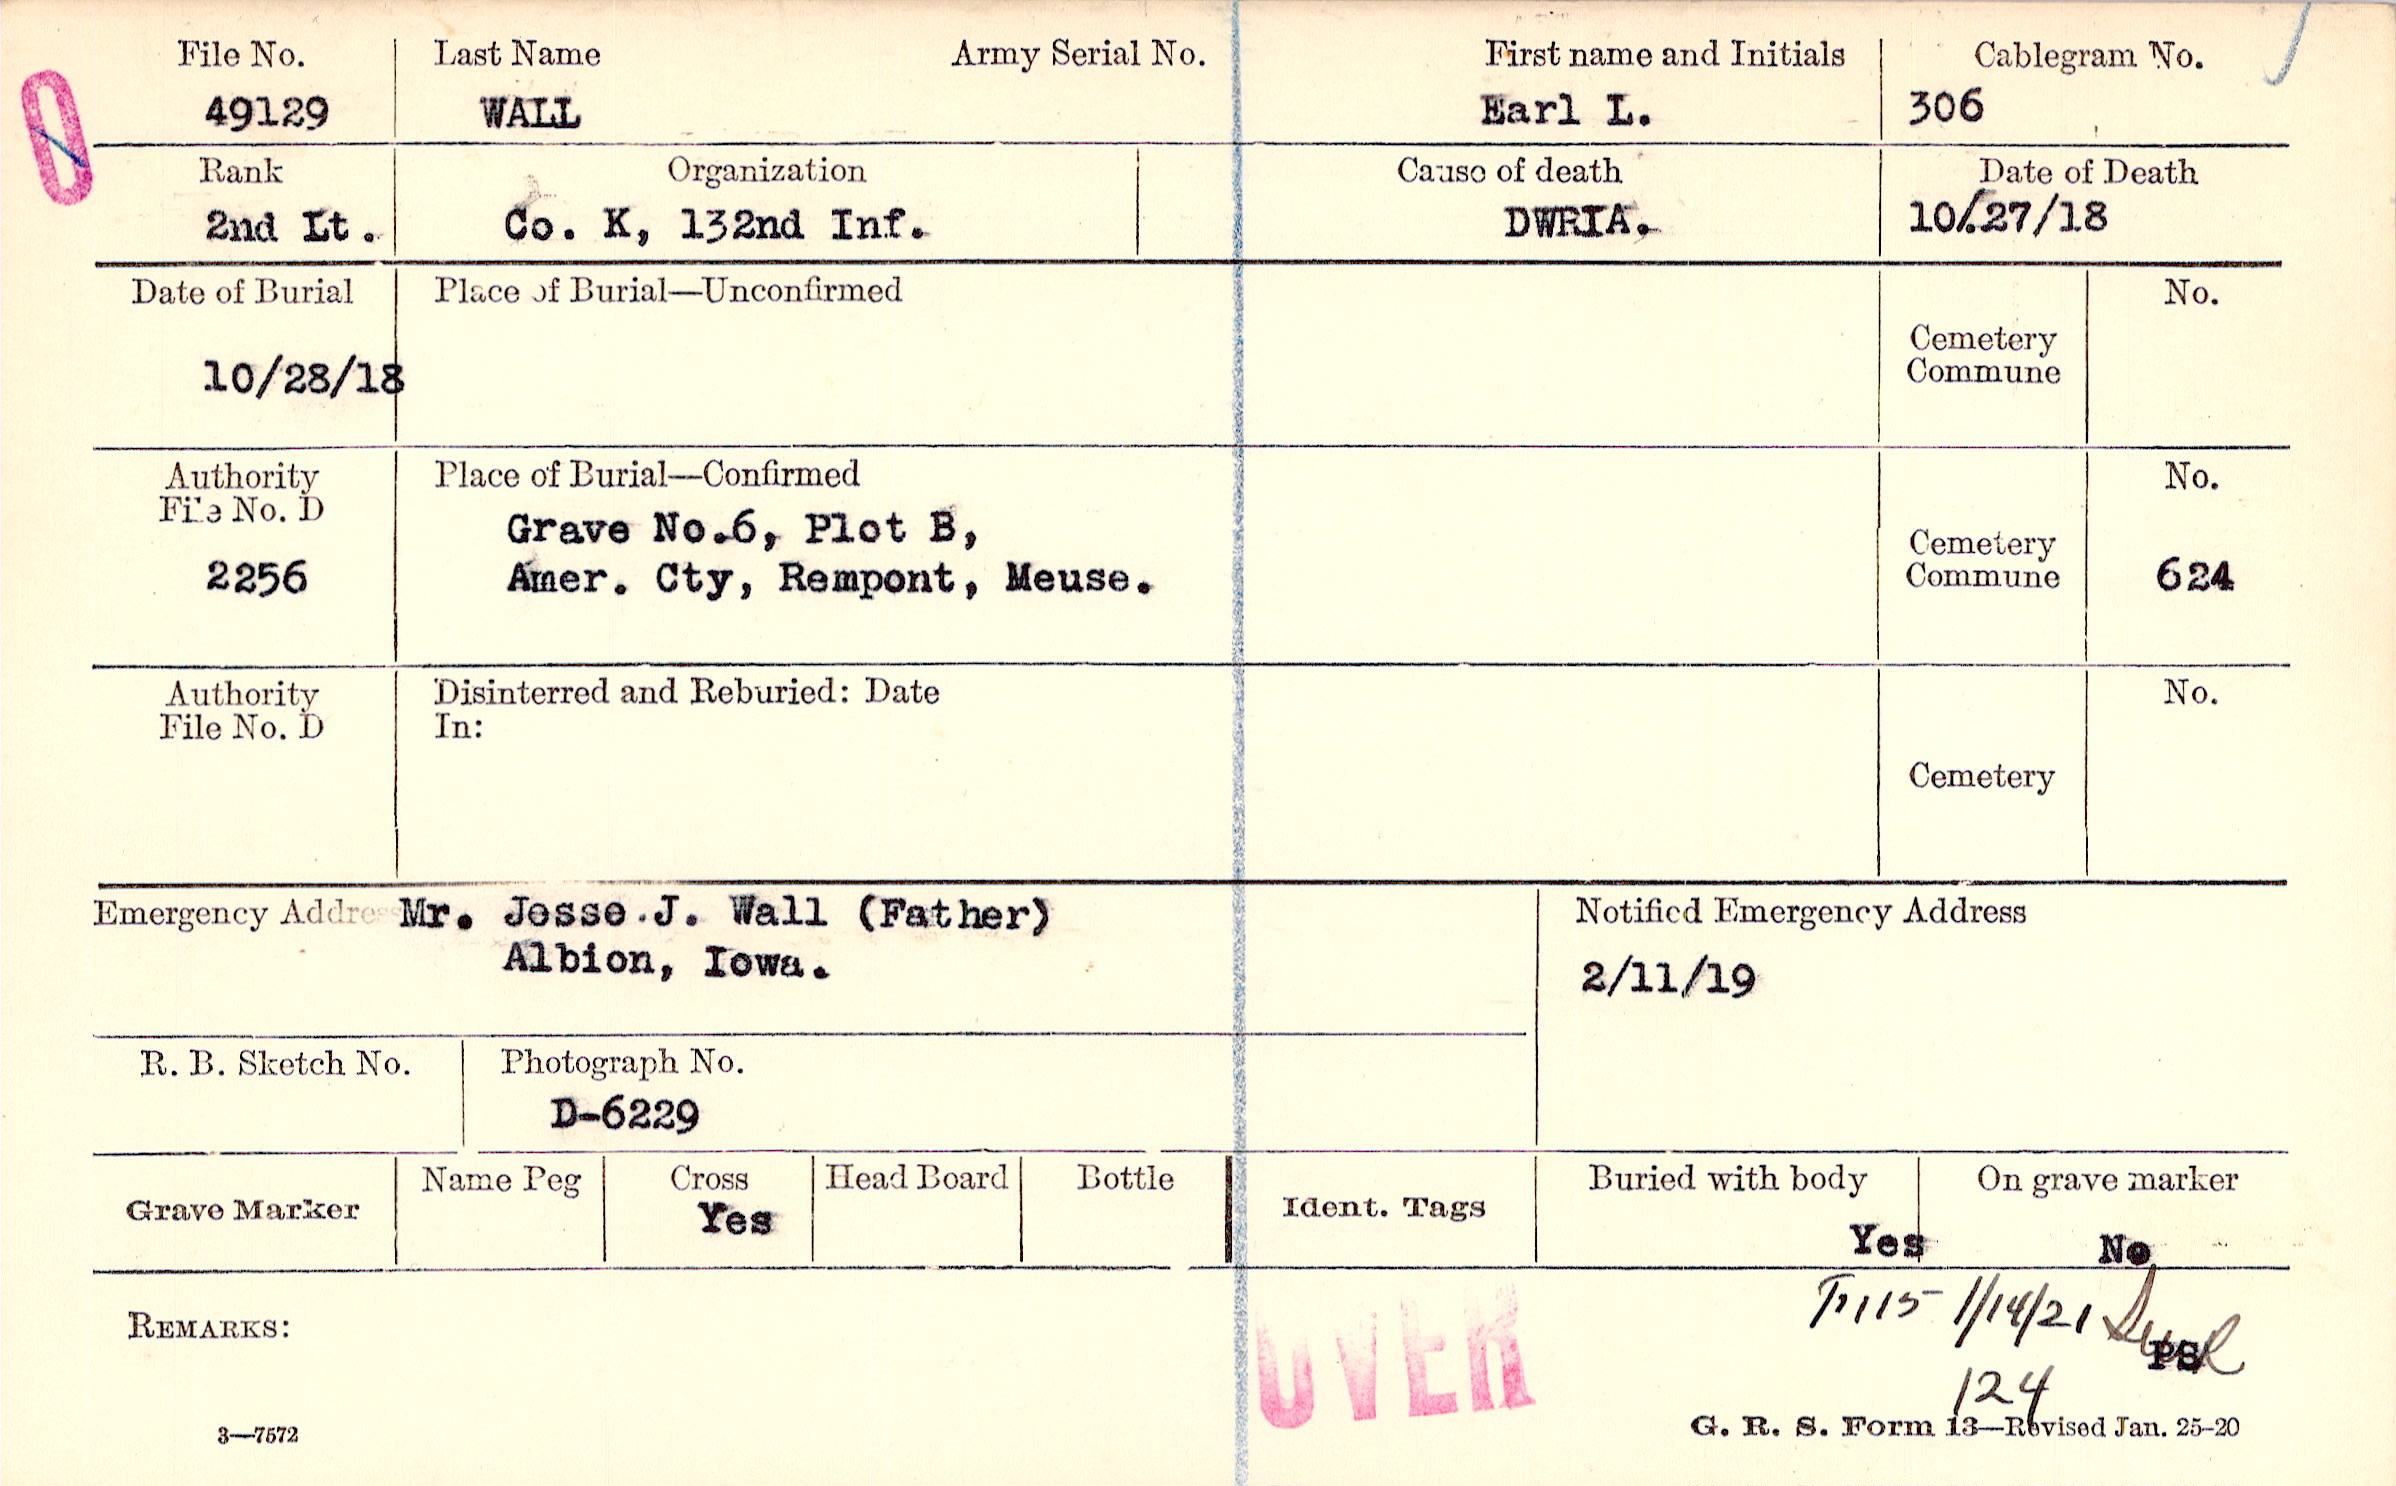 File No. Last Name Army Serial No. First name and Initials Cablegram No.
49129 WALL Earl L. 306
Rank Organization Cause of death Date of Death
2nd Lt. Co. K, 132nd Inf. DWRIA. 10/27/18
Date of Burial Place of Burial—Unconfirmed No.
10/28/18
Cemetery
Commune
Authority Place of Burial—Confirmed No.
File No. D
Grave No.6, Plot B,
Cemetery
2256 Amer. Cty, Rempont, Meuse. Commune 624
Authority Disinterred and Reburied: Date No.
File No. D In:
Cemetery
Emergency Address Mr. Jesse J. Wall (Father) Notified Emergency Address
Albion, Iowa.
2/11/19
R. B. Sketch No. Photograph No.
D-6229
Grave Marker Name Peg Cross Head Board Bottle Ident. Tags Buried with body On grave marker
Yes Yes No
REMARKS: 1/14/21
OVER PS
124
3—7572 G. R. S. Form 13—Revised Jan. 25-20